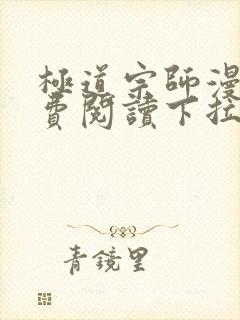 極道宗師漫
費閱讀下拉
青鏡里